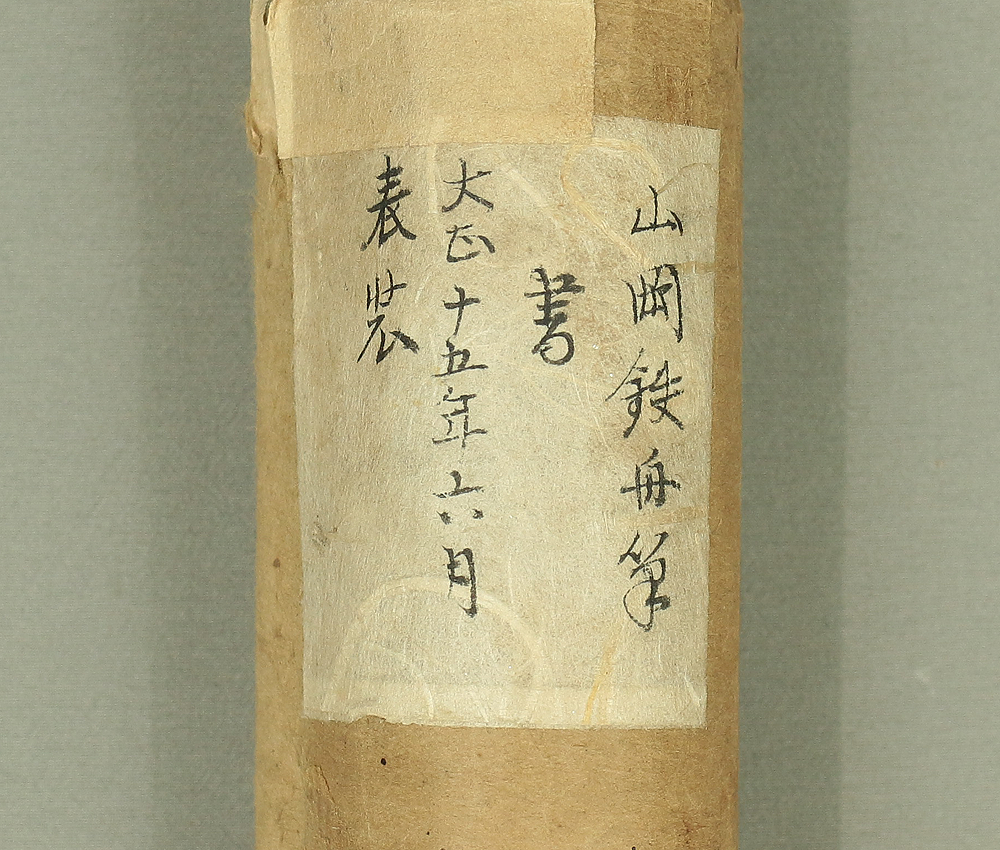 山岡鉄舟筆
書
大正十五年六月
表装